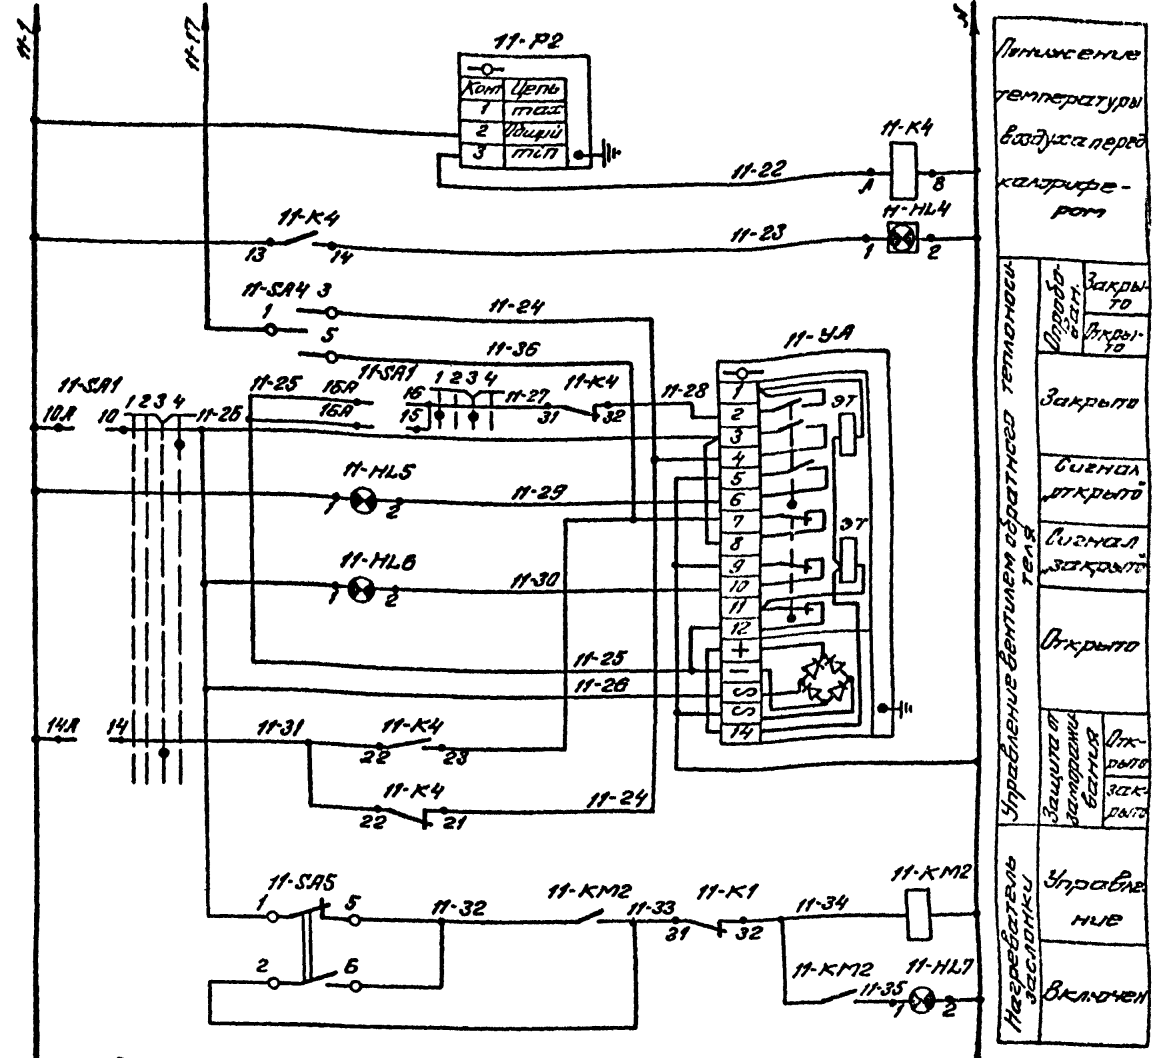 11-1
11-17
N
11-P2
Конт Цепь
1 max
2 Общий
3 min
11-22
11-K4
A
B
11-HL4
11-K4
13
14
11-23
1
2
11-SA4
3
1
5
11-24
11-36
11-SA1
10A
10
1 2 3 4
11-26
11-25
16A
16A
11-SA1
16
15
1 2 3 4
11-27
11-K4
31
32
11-28
11-УА
1
2
3
4
5
6
7
8
9
10
11
12
+
–
S
S
14
ЭТ
ЭТ
11-HL5
1
2
11-29
11-HL6
1
2
11-30
11-25
11-26
14A
14
11-31
11-K4
22
23
11-K4
22
21
11-24
11-SA5
1
5
2
6
11-32
11-KM2
11-33
11-K1
31
32
11-34
11-KM2
11-KM2
11-35
11-HL7
1
2
Понижение
температуры
воздуха перед
калорифе-
ром
Управление вентилем обратного теплоноси-
теля
Опробо-
ван.
Закры-
то
Откры-
то
Закрыто
Сигнал
„открыто"
Сигнал
„закрыто"
Открыто
Защита от
заморажи-
вания
Отк-
рыто
Зак-
рыто
Нагреватель
заслонки
Управле-
ние
Включен